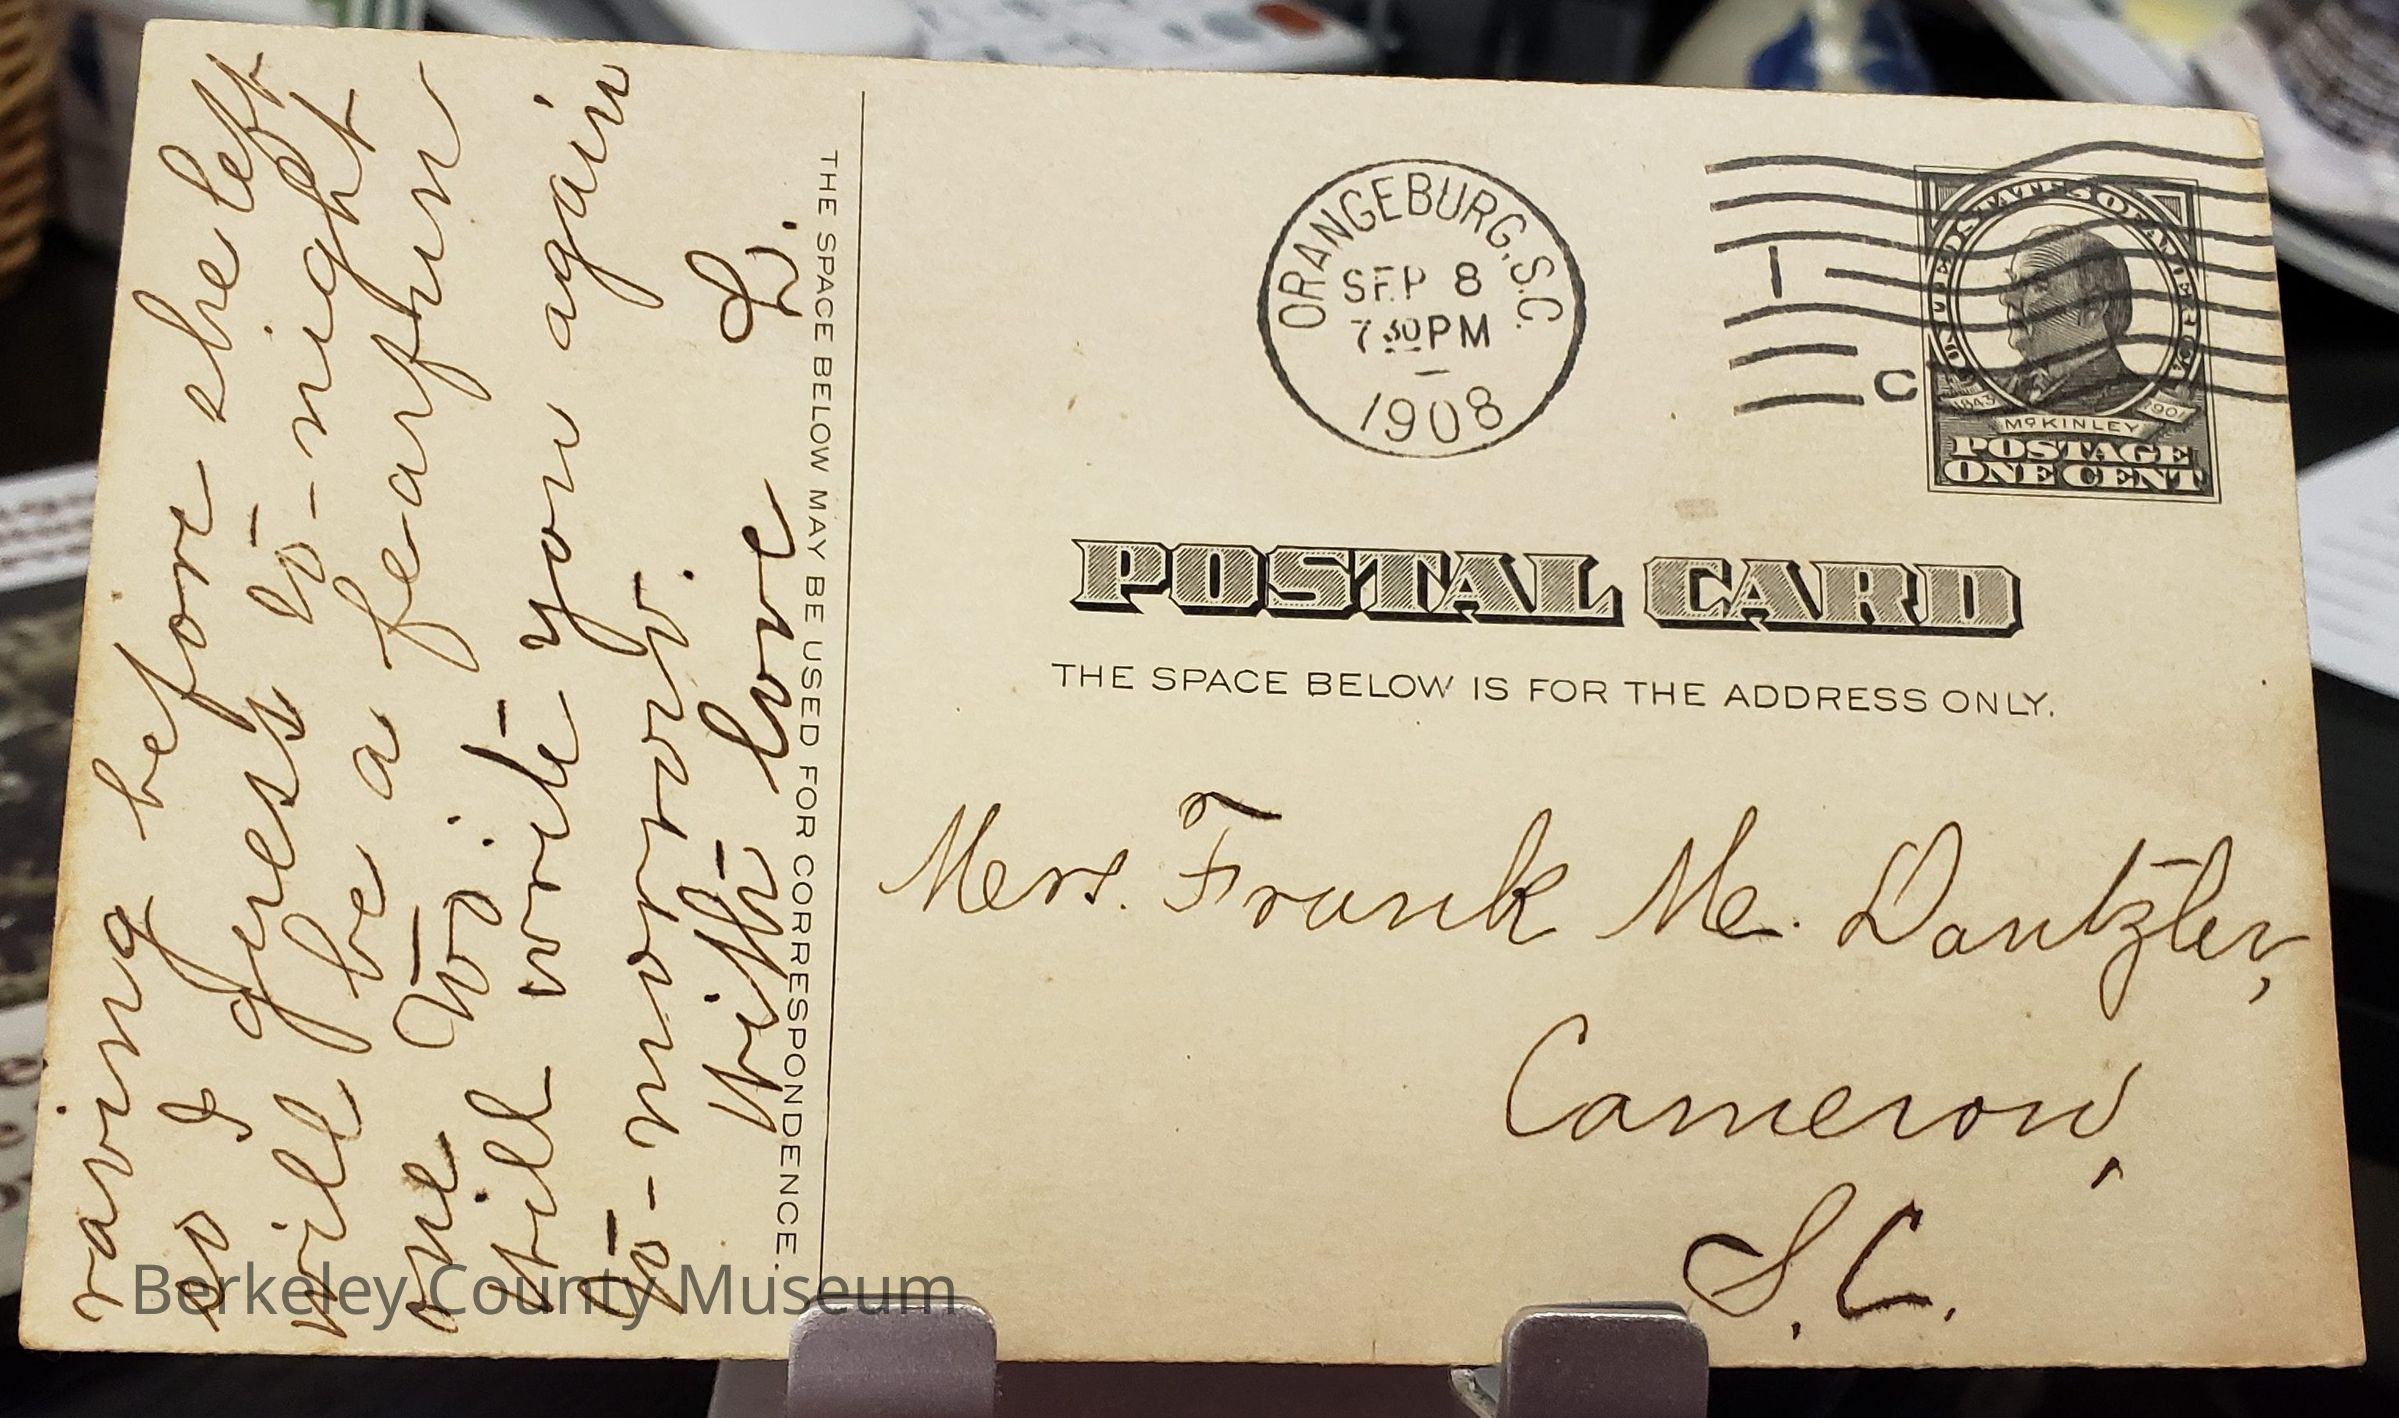 raving before she left
so I guess to-night
will be a fearful
one to us.
Will write you again
to-morrow.
With love
L.
THE SPACE BELOW MAY BE USED FOR CORRESPONDENCE.
ORANGEBURG, S.C.
SEP 8
7 30 PM
1908
1
C
UNITED STATES OF AMERICA
1843
1901
McKINLEY
POSTAGE
ONE CENT
POSTAL CARD
THE SPACE BELOW IS FOR THE ADDRESS ONLY.
Mrs. Frank M. Dantzler,
Cameron,
S.C.
Berkeley County Museum